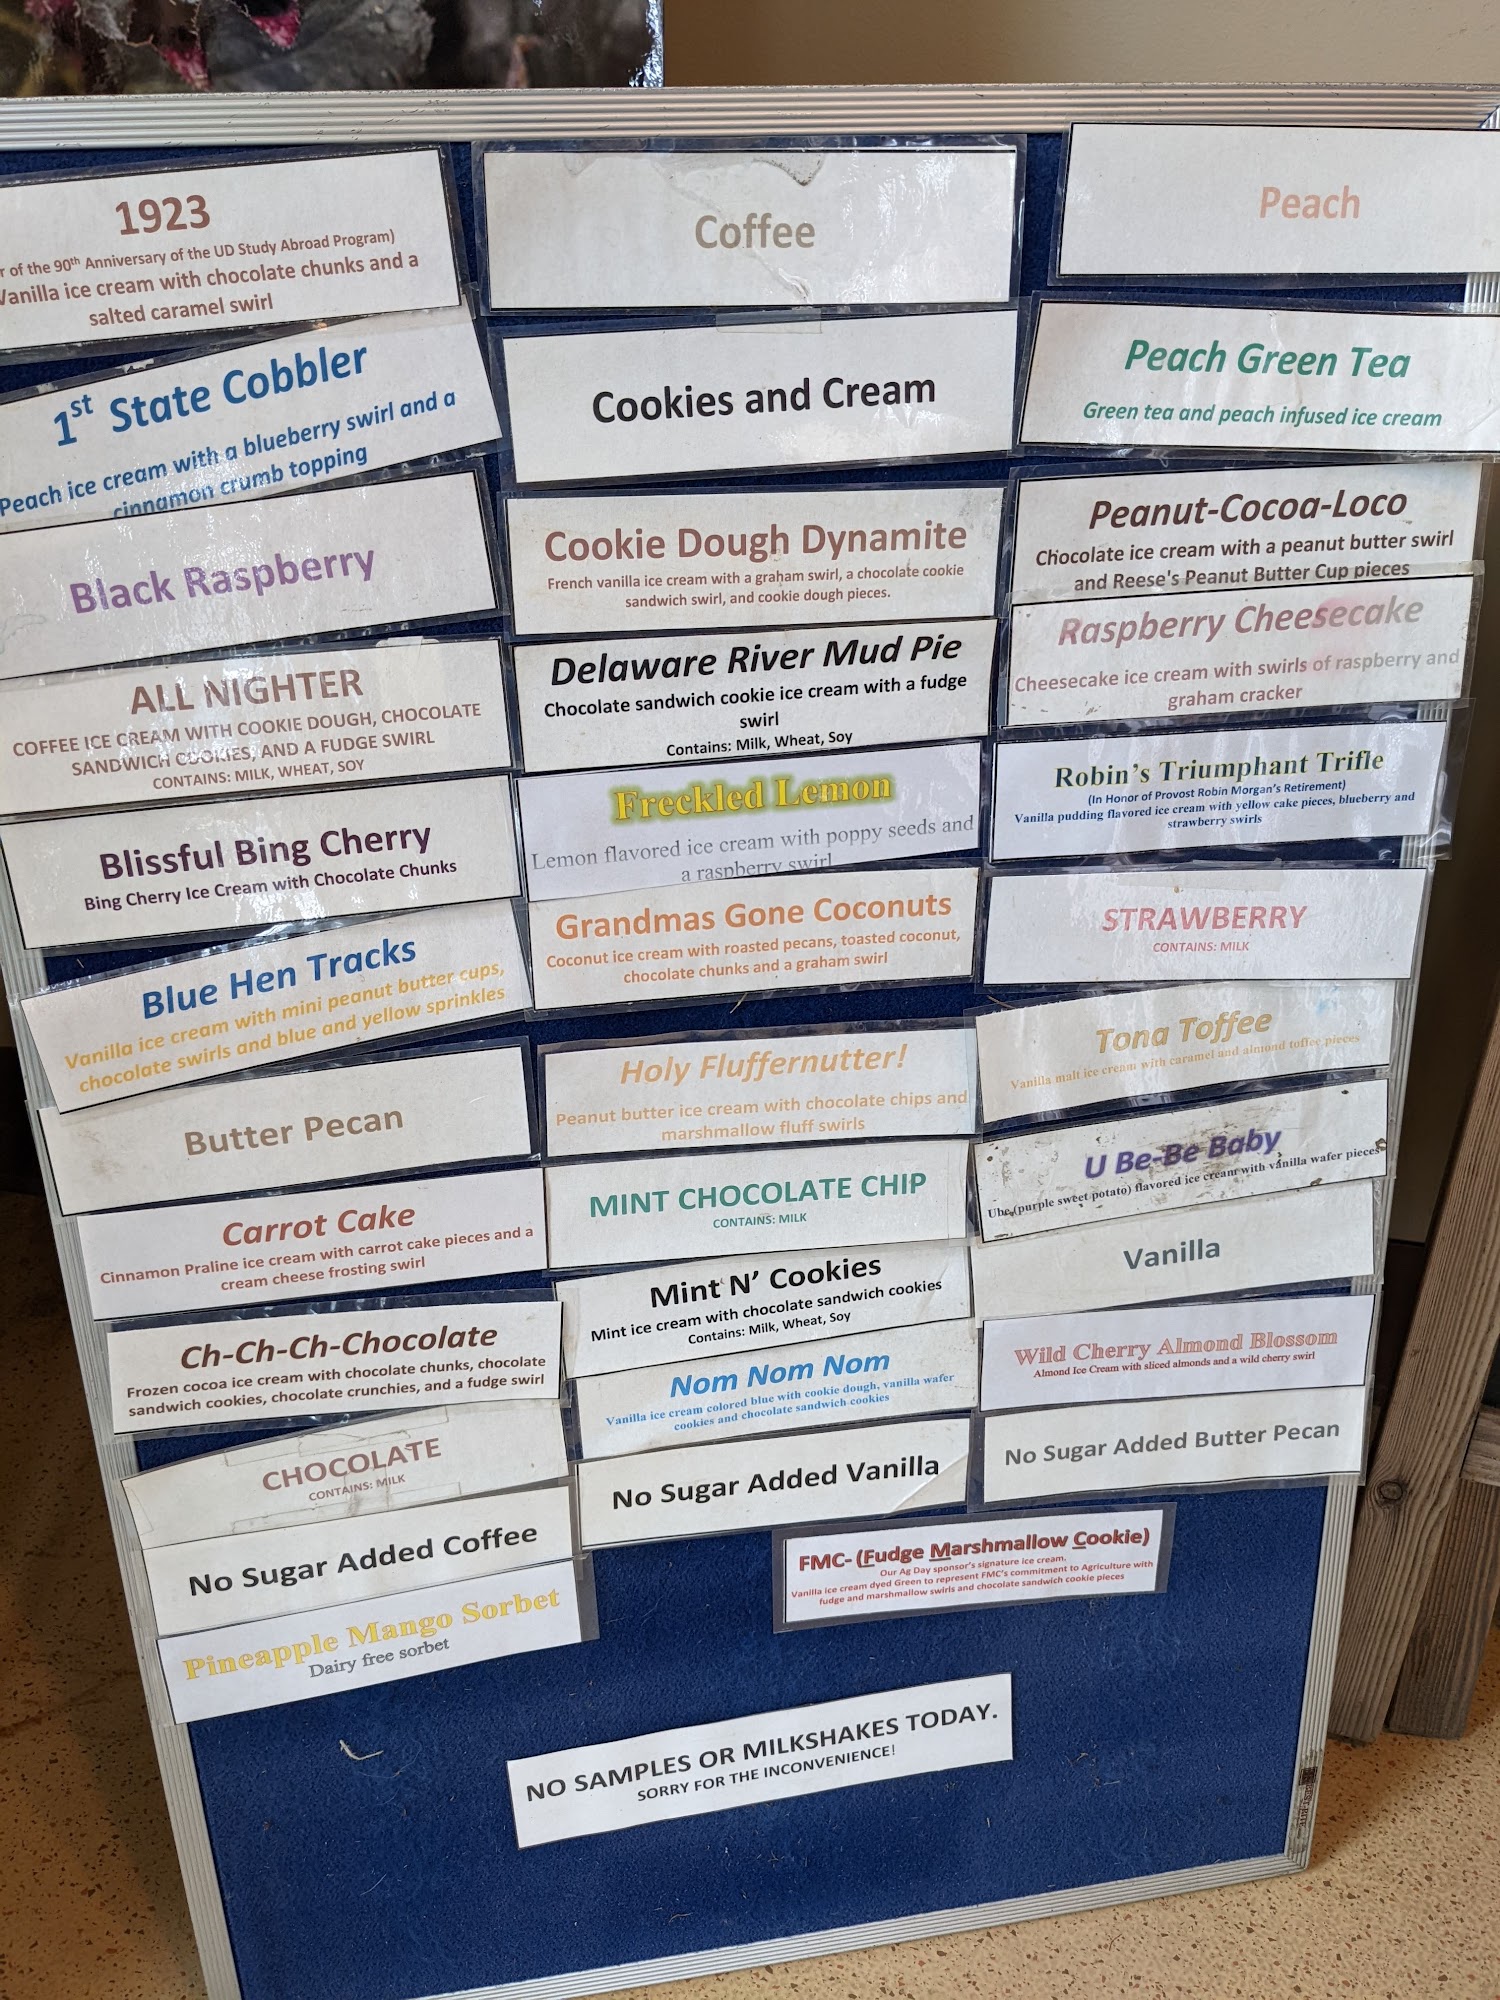 1923
r of the 90th Anniversary of the UD Study Abroad Program)
Vanilla ice cream with chocolate chunks and a
salted caramel swirl
1st State Cobbler
Peach ice cream with a blueberry swirl and a
cinnamon crumb topping
Black Raspberry
ALL NIGHTER
COFFEE ICE CREAM WITH COOKIE DOUGH, CHOCOLATE
SANDWICH COOKIES, AND A FUDGE SWIRL
CONTAINS: MILK, WHEAT, SOY
Blissful Bing Cherry
Bing Cherry Ice Cream with Chocolate Chunks
Blue Hen Tracks
Vanilla ice cream with mini peanut butter cups,
chocolate swirls and blue and yellow sprinkles
Butter Pecan
Carrot Cake
Cinnamon Praline ice cream with carrot cake pieces and a
cream cheese frosting swirl
Ch-Ch-Ch-Chocolate
Frozen cocoa ice cream with chocolate chunks, chocolate
sandwich cookies, chocolate crunchies, and a fudge swirl
CHOCOLATE
CONTAINS: MILK
No Sugar Added Coffee
Pineapple Mango Sorbet
Dairy free sorbet
Coffee
Cookies and Cream
Cookie Dough Dynamite
French vanilla ice cream with a graham swirl, a chocolate cookie
sandwich swirl, and cookie dough pieces.
Delaware River Mud Pie
Chocolate sandwich cookie ice cream with a fudge
swirl
Contains: Milk, Wheat, Soy
Freckled Lemon
Lemon flavored ice cream with poppy seeds and
a raspberry swirl
Grandmas Gone Coconuts
Coconut ice cream with roasted pecans, toasted coconut,
chocolate chunks and a graham swirl
Holy Fluffernutter!
Peanut butter ice cream with chocolate chips and
marshmallow fluff swirls
MINT CHOCOLATE CHIP
CONTAINS: MILK
Mint N' Cookies
Mint ice cream with chocolate sandwich cookies
Contains: Milk, Wheat, Soy
Nom Nom Nom
Vanilla ice cream colored blue with cookie dough, vanilla wafer
cookies and chocolate sandwich cookies
No Sugar Added Vanilla
Peach
Peach Green Tea
Green tea and peach infused ice cream
Peanut-Cocoa-Loco
Chocolate ice cream with a peanut butter swirl
and Reese's Peanut Butter Cup pieces
Raspberry Cheesecake
Cheesecake ice cream with swirls of raspberry and
graham cracker
Robin's Triumphant Trifle
(In Honor of Provost Robin Morgan's Retirement)
Vanilla pudding flavored ice cream with yellow cake pieces, blueberry and
strawberry swirls
STRAWBERRY
CONTAINS: MILK
Tona Toffee
Vanilla malt ice cream with caramel and almond toffee pieces
U Be-Be Baby
Ube (purple sweet potato) flavored ice cream with vanilla wafer pieces
Vanilla
Wild Cherry Almond Blossom
Almond Ice Cream with sliced almonds and a wild cherry swirl
No Sugar Added Butter Pecan
FMC- (Fudge Marshmallow Cookie)
Our Ag Day sponsor's signature ice cream.
Vanilla ice cream dyed Green to represent FMC's commitment to Agriculture with
fudge and marshmallow swirls and chocolate sandwich cookie pieces
NO SAMPLES OR MILKSHAKES TODAY.
SORRY FOR THE INCONVENIENCE!